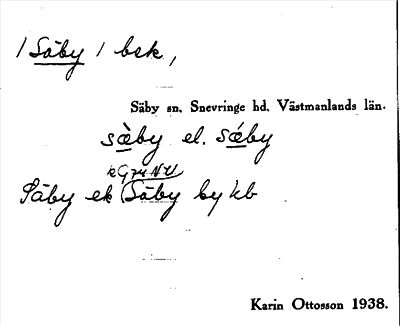 / Säby / bek,
Säby sn, Snevringe hd, Västmanlands län.
sä̀by el. sä́by
Säby ek (Säby by kb
Karin Ottosson 1938.